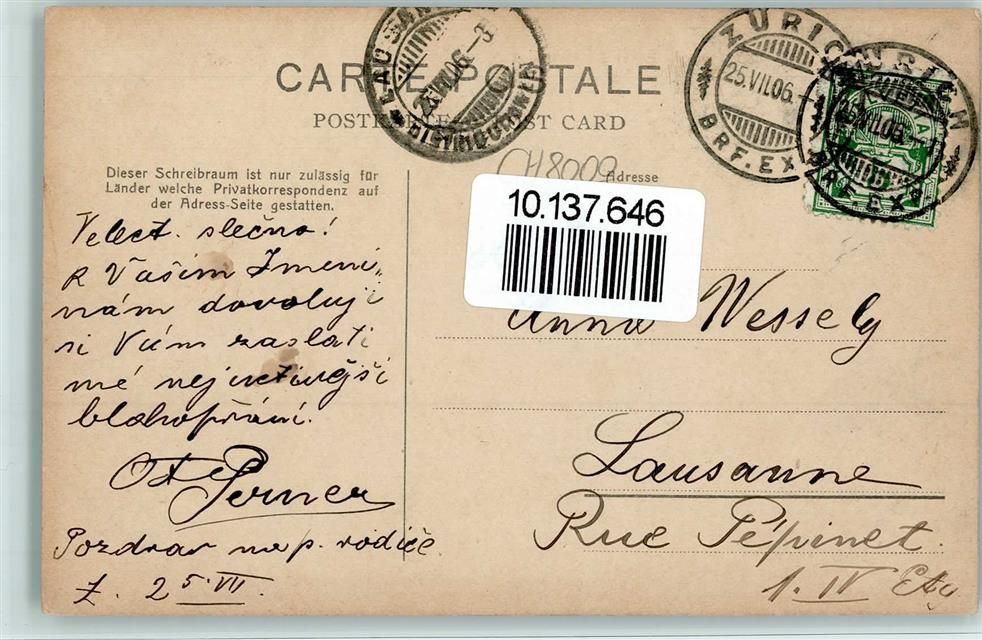 CARTE POSTALE
POST CARD
CH8009
Adresse
Dieser Schreibraum ist nur zulässig für
Länder welche Privatkorrespondenz auf
der Adress-Seite gestatten.
10.137.646
ZÜRICH
25.VII.06.
BRF. EXP
Velect. slečno!
K Vašim Jmeni
nám dovoluji
si Vám zaslati
mé nejuctivější
blahopřání.
Ot. Perner
Pozdrav na p. rodiče
Z. 25. VII.
Anna Wessely
Lausanne
Rue Pépinet.
1. IV